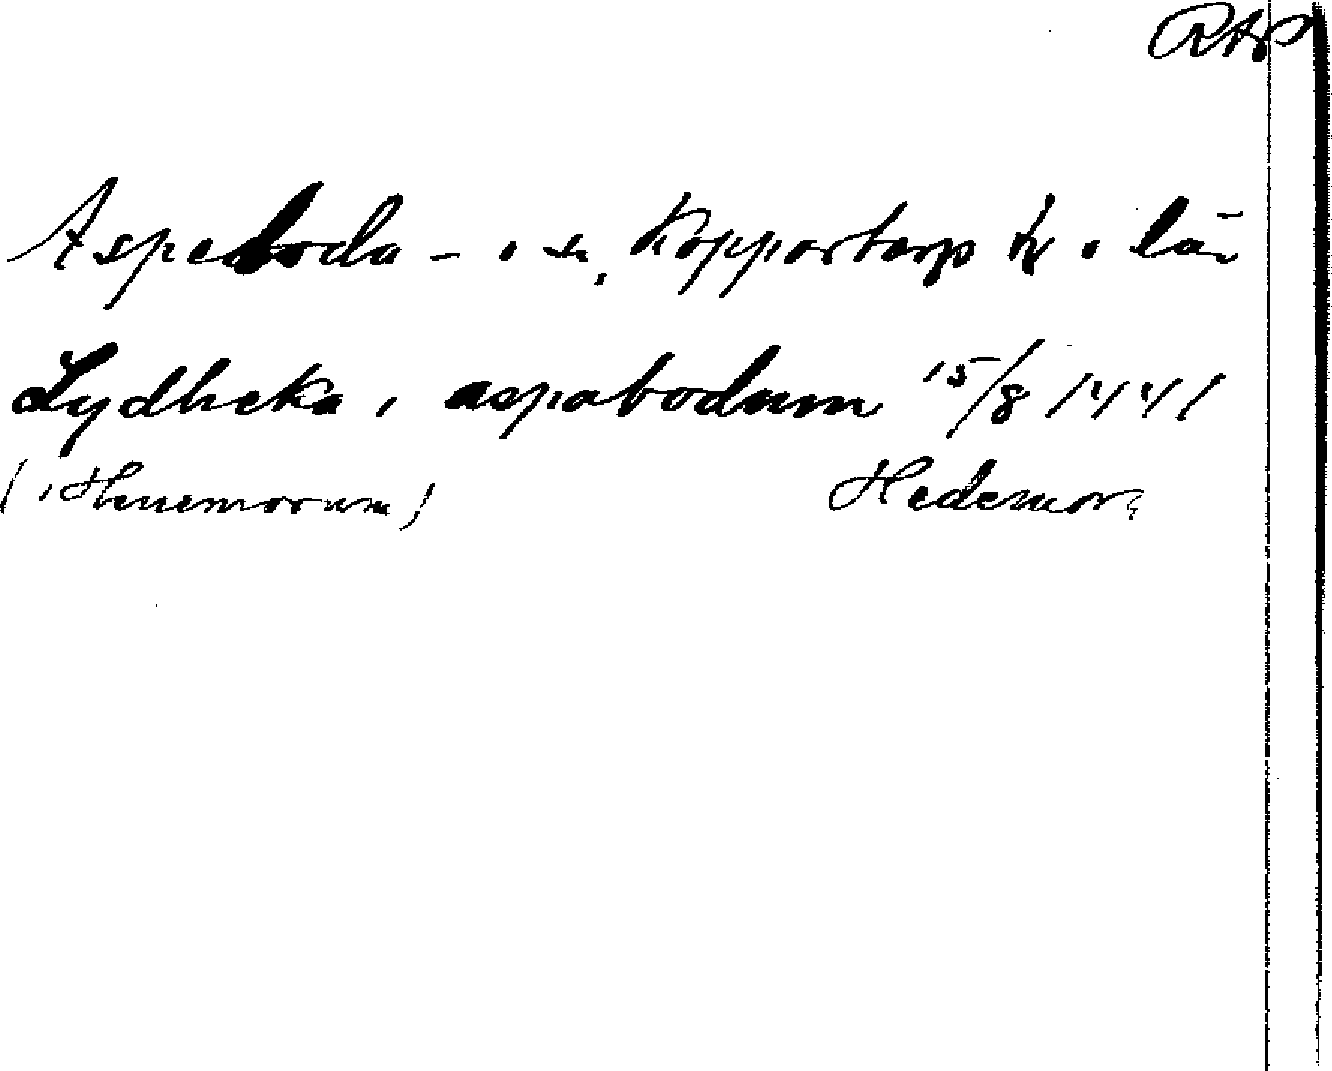 RAP
Aspeboda - o sn, Kopparbergs o län
Lydheka i aspabodum 15/8 1441
(i Henemorum) Hedemora